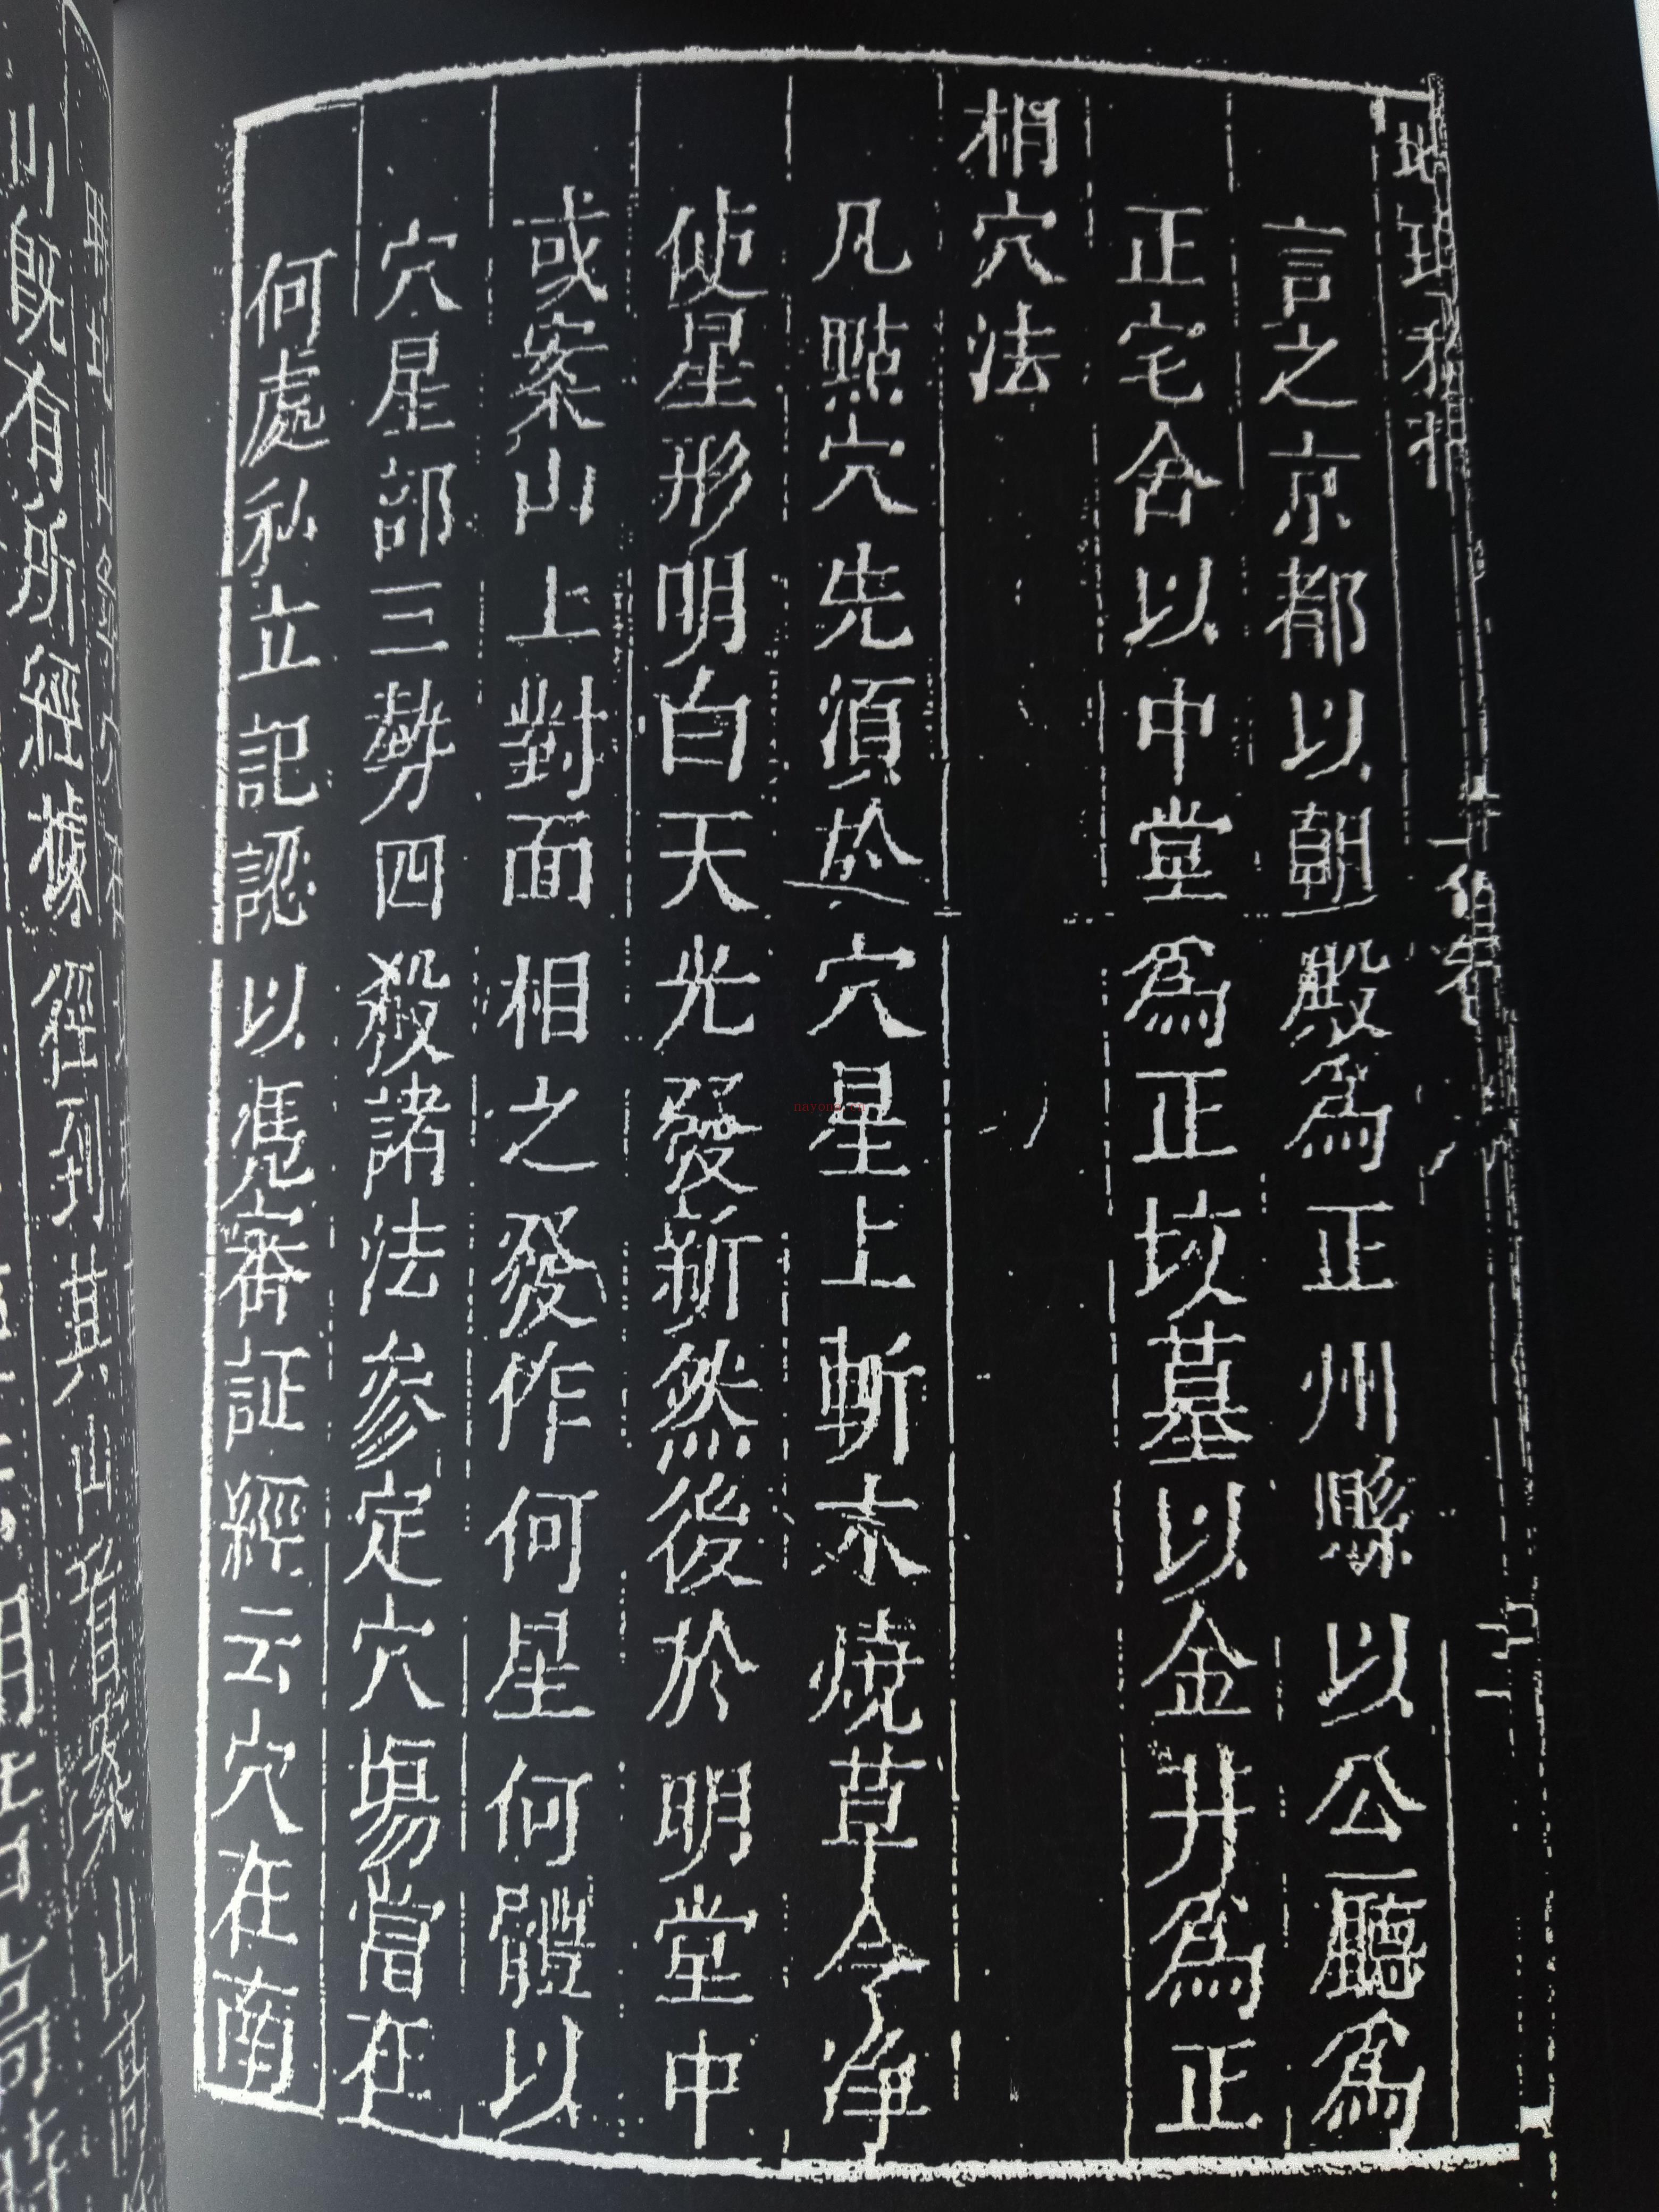 言之京都以朝殿為正州縣以公廳為
正宅舍以中堂為正垓墓以金井為正
相穴法
凡點穴先須於穴星上斬木燒草令净
使星形明白天光發新然後於明堂中
或案山上對面相之發作何星何體以
穴星部三勢四殺諸法参定穴場當在
何處私立記認以憑審証經云穴在南
山既有所經據經列其山